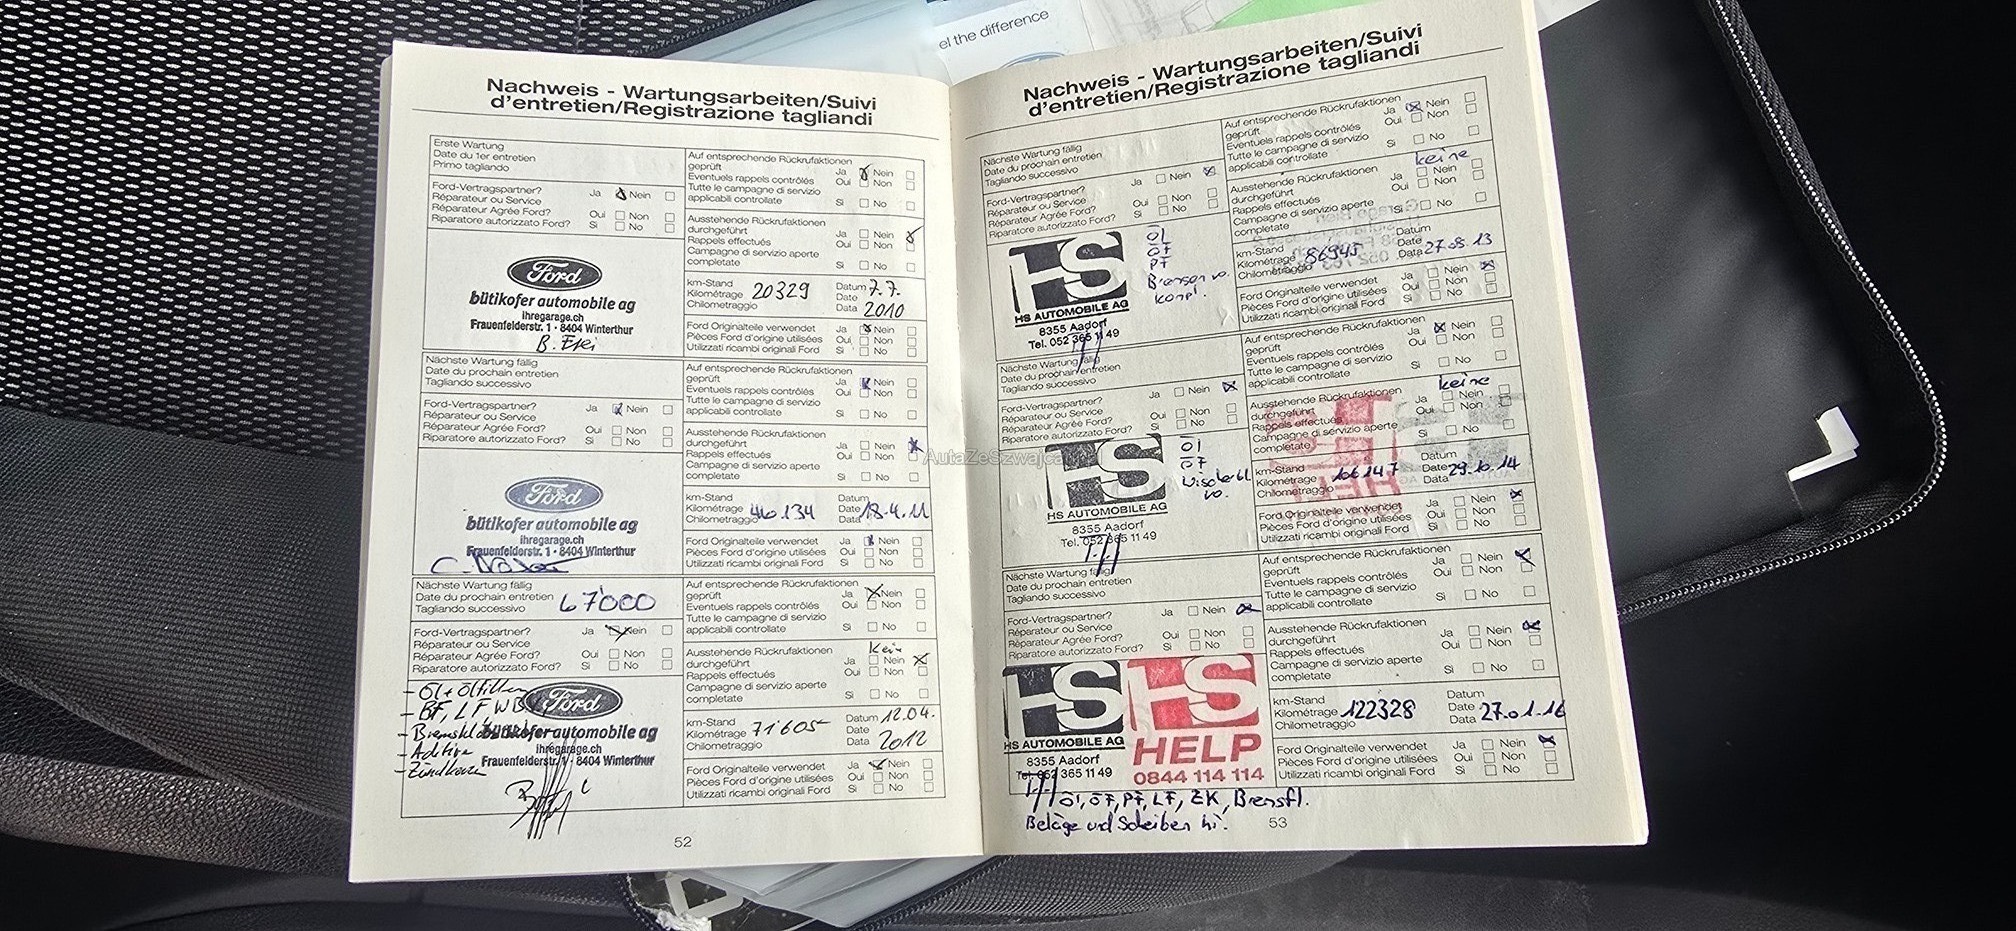 el the difference
Nachweis - Wartungsarbeiten/Suivi
d'entretien/Registrazione tagliandi
Erste Wartung
Date du 1er entretien
Primo tagliando
Ford-Vertragspartner? Ja Nein
Réparateur ou Service
Réparateur Agrée Ford? Oui Non
Riparatore autorizzato Ford? Si No
Ford
bütikofer automobile ag
ihregarage.ch
Frauenfelderstr. 1 · 8404 Winterthur
Auf entsprechende Rückrufaktionen
geprüft Ja Nein
Eventuels rappels contrôlés Oui Non
Tutte le campagne di servizio
applicabili controllate Si No
Ausstehende Rückrufaktionen
durchgeführt Ja Nein
Rappels effectués Oui Non
Campagne di servizio aperte
completate Si No
km-Stand
Kilométrage 20329
Chilometraggio
Datum 7.7.
Date
Data 2010
Ford Originalteile verwendet Ja Nein
Pièces Ford d'origine utilisées Oui Non
Utilizzati ricambi originali Ford Si No
Nächste Wartung fällig
Date du prochain entretien
Tagliando successivo
Ford-Vertragspartner? Ja Nein
Réparateur ou Service
Réparateur Agrée Ford? Oui Non
Riparatore autorizzato Ford? Si No
Ford
bütikofer automobile ag
ihregarage.ch
Frauenfelderstr. 1 · 8404 Winterthur
Auf entsprechende Rückrufaktionen
geprüft Ja Nein
Eventuels rappels contrôlés Oui Non
Tutte le campagne di servizio
applicabili controllate Si No
Ausstehende Rückrufaktionen
durchgeführt Ja Nein
Rappels effectués Oui Non
Campagne di servizio aperte
completate Si No
km-Stand
Kilométrage 46.134
Chilometraggio
Datum
Date 18.4.11
Data
Ford Originalteile verwendet Ja Nein
Pièces Ford d'origine utilisées Oui Non
Utilizzati ricambi originali Ford Si No
Nächste Wartung fällig
Date du prochain entretien 67000
Tagliando successivo
Ford-Vertragspartner? Ja Nein
Réparateur ou Service
Réparateur Agrée Ford? Oui Non
Riparatore autorizzato Ford? Si No
- Öl + Ölfilter
- BF, LF, WB
- Aditive
- Zündkerze
Ford
bütikofer automobile ag
ihregarage.ch
Frauenfelderstr. 1 · 8404 Winterthur
Auf entsprechende Rückrufaktionen
geprüft Ja Nein
Eventuels rappels contrôlés Oui Non
Tutte le campagne di servizio
applicabili controllate Si No
Ausstehende Rückrufaktionen Kein
durchgeführt Ja Nein
Rappels effectués Oui Non
Campagne di servizio aperte
completate Si No
km-Stand
Kilométrage 71605
Chilometraggio
Datum 12.04.
Date
Data 2012
Ford Originalteile verwendet Ja Nein
Pièces Ford d'origine utilisées Oui Non
Utilizzati ricambi originali Ford Si No
52
Nachweis - Wartungsarbeiten/Suivi
d'entretien/Registrazione tagliandi
Nächste Wartung fällig
Date du prochain entretien
Tagliando successivo
Ford-Vertragspartner? Ja Nein
Réparateur ou Service
Réparateur Agrée Ford? Oui Non
Riparatore autorizzato Ford? Si No
HS
HS AUTOMOBILE AG
8355 Aadorf
Tel. 052 365 11 49
Öl
ÖF
PF
Bremsen vo.
kompl.
Auf entsprechende Rückrufaktionen
geprüft Ja Nein
Eventuels rappels contrôlés Oui Non
Tutte le campagne di servizio
applicabili controllate Si No
keine
Ausstehende Rückrufaktionen
durchgeführt Ja Nein
Rappels effectués Oui Non
Campagne di servizio aperte
completate Si No
km-Stand
Kilométrage 86945
Chilometraggio
Datum
Date 27.03.13
Data
Ford Originalteile verwendet Ja Nein
Pièces Ford d'origine utilisées Oui Non
Utilizzati ricambi originali Ford Si No
Nächste Wartung fällig
Date du prochain entretien
Tagliando successivo
Ford-Vertragspartner? Ja Nein
Réparateur ou Service
Réparateur Agrée Ford? Oui Non
Riparatore autorizzato Ford? Si No
HS
HS AUTOMOBILE AG
8355 Aadorf
Tel. 052 365 11 49
Öl
ÖF
Wischerbl.
vo.
Auf entsprechende Rückrufaktionen
geprüft Ja Nein
Eventuels rappels contrôlés Oui Non
Tutte le campagne di servizio
applicabili controllate Si No
keine
Ausstehende Rückrufaktionen
durchgeführt Ja Nein
Rappels effectués Oui Non
Campagne di servizio aperte
completate Si No
km-Stand
Kilométrage 106147
Chilometraggio
Datum
Date 29.10.14
Data
Ford Originalteile verwendet Ja Nein
Pièces Ford d'origine utilisées Oui Non
Utilizzati ricambi originali Ford Si No
Nächste Wartung fällig
Date du prochain entretien
Tagliando successivo
Ford-Vertragspartner? Ja Nein
Réparateur ou Service
Réparateur Agrée Ford? Oui Non
Riparatore autorizzato Ford? Si No
HS
HS AUTOMOBILE AG
8355 Aadorf
Tel. 052 365 11 49
HS
HELP
0844 114 114
Auf entsprechende Rückrufaktionen
geprüft Ja Nein
Eventuels rappels contrôlés Oui Non
Tutte le campagne di servizio
applicabili controllate Si No
Ausstehende Rückrufaktionen
durchgeführt Ja Nein
Rappels effectués Oui Non
Campagne di servizio aperte
completate Si No
km-Stand
Kilométrage 122328
Chilometraggio
Datum
Date
Data 27.01.16
Ford Originalteile verwendet Ja Nein
Pièces Ford d'origine utilisées Oui Non
Utilizzati ricambi originali Ford Si No
Öl, ÖF, PF, LF, ZK, Bremsfl.
Beläge und Scheiben hi.
53